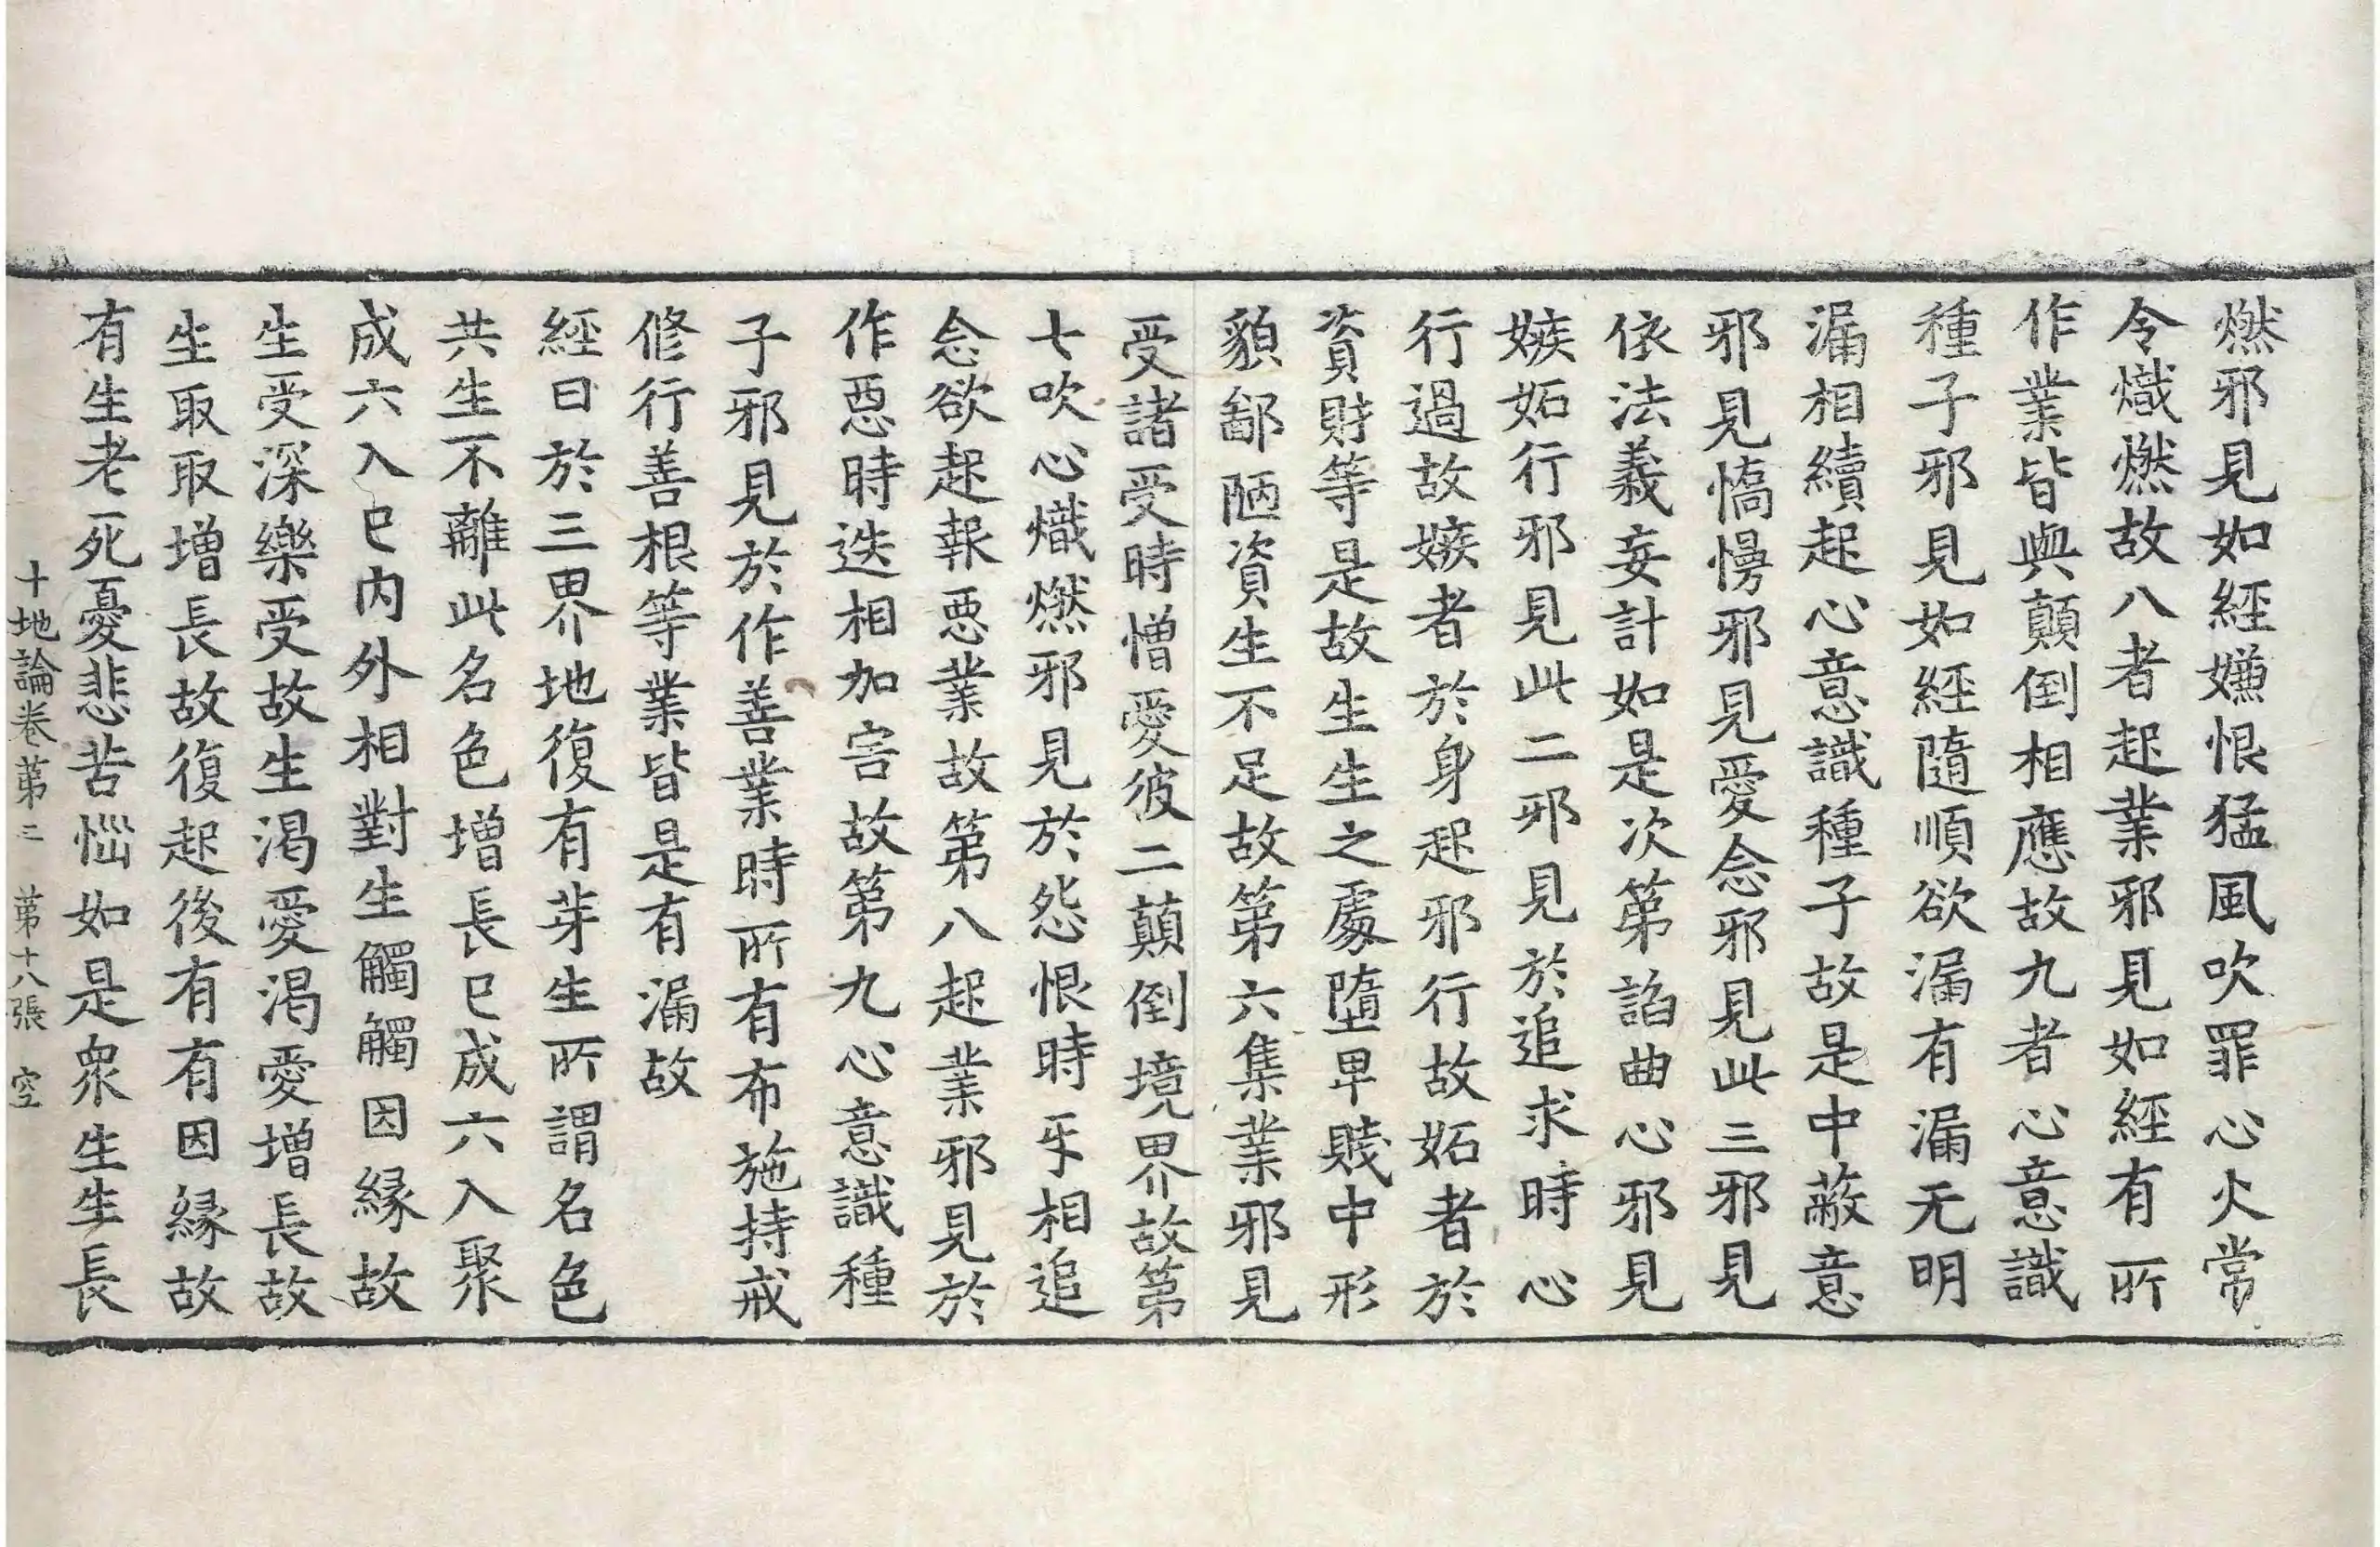 燃邪見如經嫌恨猛風吹罪心火常
令熾燃故八者起業邪見如經有所
作業皆與顛倒相應故九者心意識
種子邪見如經隨順欲漏有漏无明
漏相續起心意識種子故是中蔽意
邪見憍慢邪見愛念邪見此三邪見
依法義妄計如是次第諂曲心邪見
嫉妬行邪見此二邪見於追求時心
行過故嫉者於身起邪行故妬者於
資財等是故生生之處墮卑賤中形
貌鄙陋資生不足故第六集業邪見
受諸受時憎愛彼二顛倒境界故第
七吹心熾燃邪見於怨恨時㸦相追
念欲起報惡業故第八起業邪見於
作惡時迭相加害故第九心意識種
子邪見於作善業時所有布施持戒
修行善根等業皆是有漏故
經曰於三界地復有芽生所謂名色
共生不離此名色增長已成六入聚
成六入已内外相對生觸觸因緣故
生受深樂受故生渴愛渴愛增長故
生取取增長故復起後有有因緣故
有生老死憂悲苦惱如是衆生生長
十地論卷第二 第十八張 空